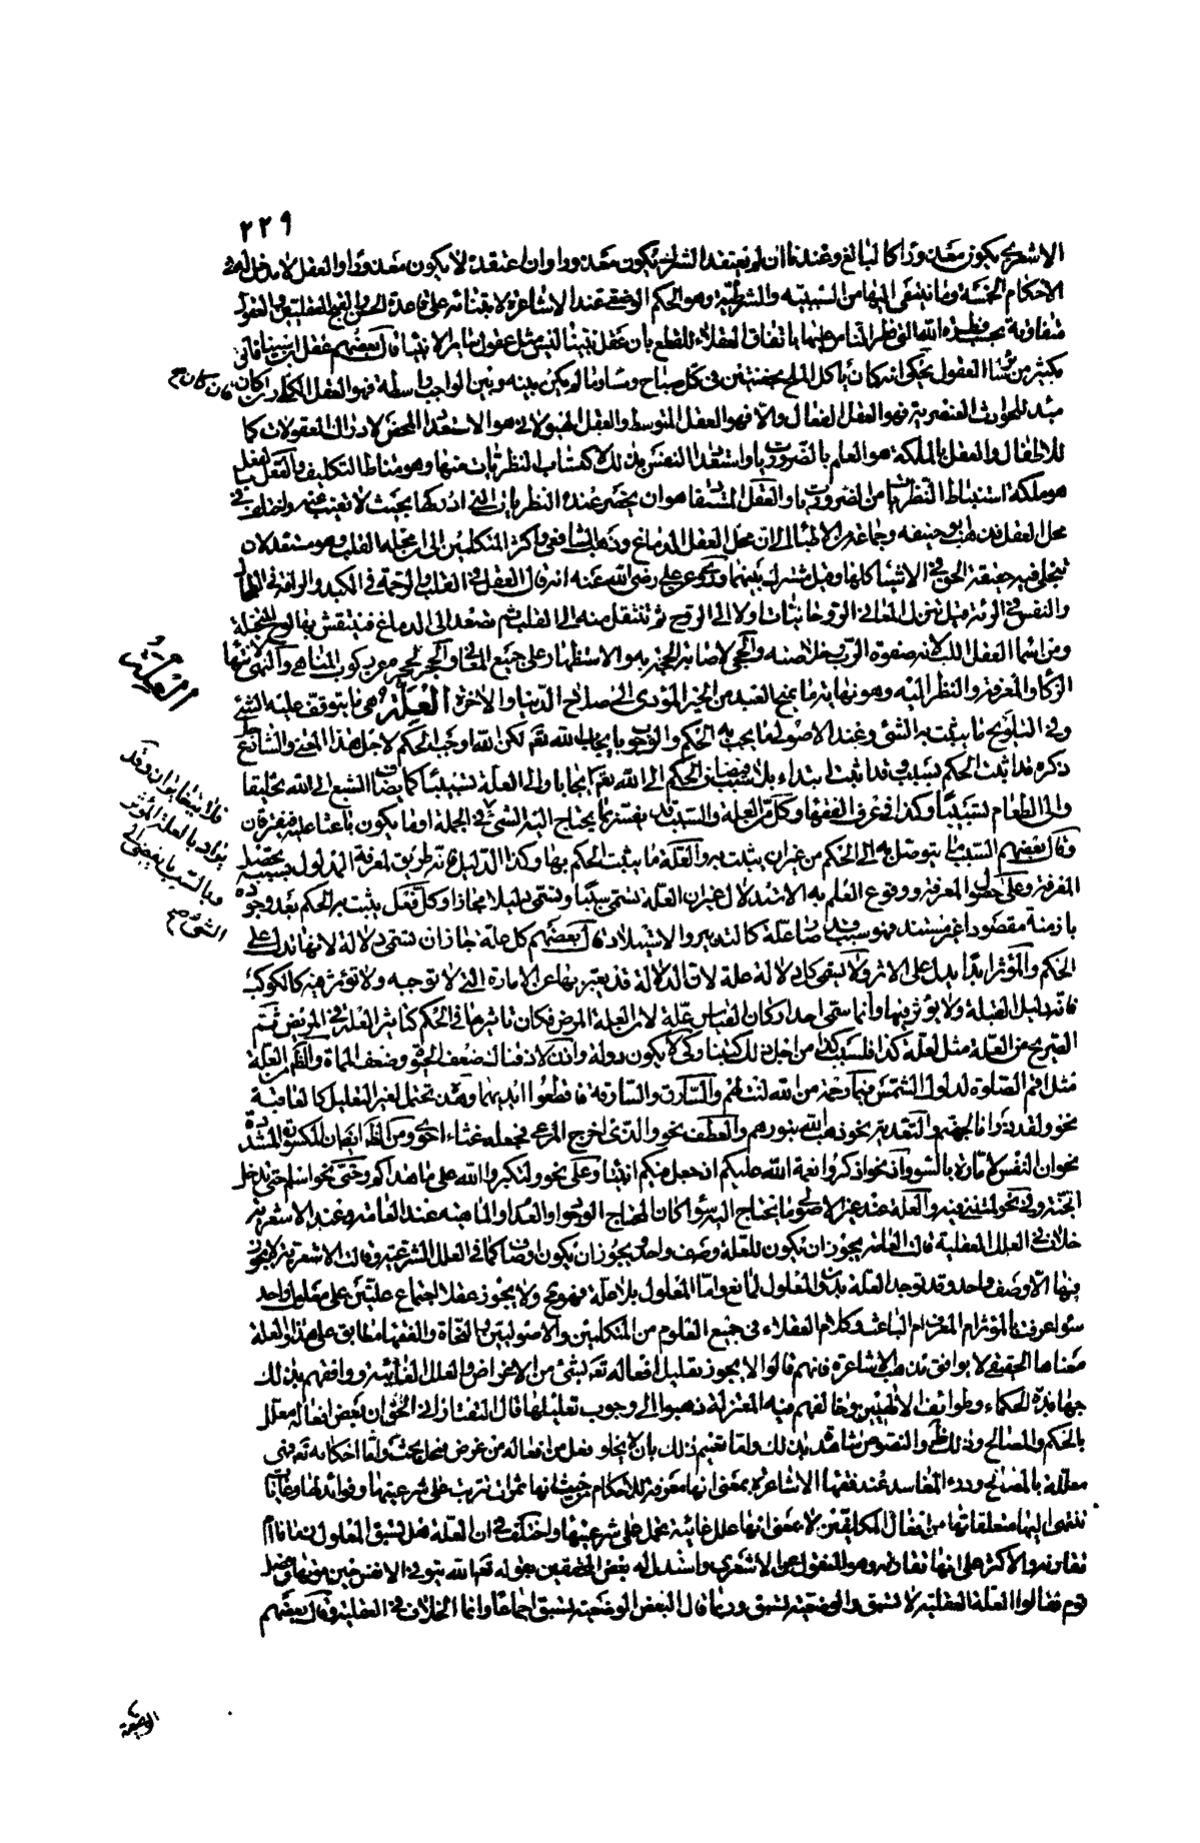 ٢٢٩
الاشعري يكون معذورا كالبالغ وعندنا ان لم يعتقد الشرك يكون معذورا وان اعتقده لا يكون معذورا والعقل لا مدخل له في
الاحكام الخمسة وما ينتمي اليها من السببية والشرطية وهو الحكم الوضعي عند الاشاعرة لابتنائه على قاعدة الحسن والقبح العقليين والعقول
متفاوتة بحسب فطرة الله التي فطر الناس عليها باتفاق العقلاء للقطع بان عقل نبينا ليس مثل عقول سائر الانبياء قال بعضهم عقل ابن سينا
بكثير من هذا العقول يحكى انه كان يأكل الملح بحفنتين في كل صباح ومساء وما لم يكن بينه وبين الواجب واسطة فهو العقل الكلي
مبدأ للحوادث العنصرية فهو العقل الفعال والا فهو العقل المتوسط والعقل الهيولاني هو الاستعداد المحض لادراك المعقولات كما
للاطفال والعقل بالملكة هو العلم بالضروريات واستعداد النفس بذلك لاكتساب النظريات منها وهو مناط التكليف والعقل بالفعل
هو ملكة استنباط النظريات من الضروريات والعقل المستفاد هو ان يحضر عنده النظريات التي ادركها بحيث لا تغيب عنه واختلف في
محل العقل فذهب ابو حنيفه وجماعة من الاطباء الى ان محل العقل الدماغ وذهب الشافعي واكثر المتكلمين الى ان محله القلب وهو مستعد لان
تنجلي فيه حقيقة الحق في الاشياء كلها وقيل مشترك بينهما وروي عن علي رضي الله عنه انه قال العقل في القلب والرحمة في الكبد والرافة في الطحال
والنفس في الرئة قيل تنزل المعاني الروحانيات اولا الى الروح ثم تنتقل منه الى القلب ثم تصعد الى الدماغ فينتقش بها لوح المتخيلة
ومن اسماء العقل اللب لانه صفوة الرب وخلاصته والحجى لاصابة الحجة به والاستظهار على جميع المعاني والحجر لحجره عن ركوب المناهي والنهى لانتهاء
الذكاء والمعرفة والنظر اليه وهو نهاية ما يمنح العبد من الخير المؤدي الى صلاح الدنيا والاخرة العلة هي ما يتوقف عليه الشيء
وفي التلويح ما يثبت به الشيء وعند الاصولي ما يجب به الحكم والوجوب بايجاب الله تعالى لكن الله اوجب الحكم لاجل هذا المعنى والشارع
ذكره قد اثبت الحكم بسبب وقد اثبت ابتداء بلا سبب فيضاف الحكم الى الله تعالى ايجابا والى العلة تسبيبا كما يضاف الشبع الى الله تخليقا
والى الطعام تسبيبا وكذا في عرف الفقهاء وكل من العلة والسبب قد يفسر بما يحتاج اليه الشيء في الجملة او ما يكون باعثا عليه فيفترقان
وقال بعضهم السبب ما يتوصل به الى الحكم من غير ان يثبت به والعلة ما يثبت الحكم بها وكذا الدليل فانه طريق لمعرفة المدلول بسببه يحصل
المعرفة وعلى حصول المعرفة ووقوع العلم به الاستدلال غير ان العلة تسمى سببا وتسمى دليلا مجازا وكل فعل يثبت به الحكم بعد وجوده
بازمنة مقصودا غير مستند فهو سبب قد صار علة كالتدبير والاستيلاد قال بعضهم كل علة جاز ان تسمى دلالة لانها تدل على
الحكم والمؤثر ابدا يدل على الاثر ولا يسمى كل دلالة علة لان الدلالة قد يعبر بها عن الامارة التي لا توجبه ولا تؤثر فيه كالكوكب
فانه دليل القبلة ولا يؤثر فيها وانما سمي احد اركان القياس علة لان العلة المرض فكان تاثيرها في الحكم كتاثير العلة في المريض ثم
الصريح من العلة مثل لعلة كذا فلسبب كذا من اجل ذلك كتبنا وكي لا يكون دولة واذن لاذقناك ضعف الحيوة وضعف الممات والظاهر من العلة
مثل اقم الصلوة لدلوك الشمس فبما رحمة من الله لنت لهم والسارق والسارقة فاقطعوا ايديهما وقد تحتمل لغير التعليل كالعاقبة
نحو ولقد ذرأنا لجهنم والتعدية نحو ذهب الله بنورهم والعطف نحو والذي اخرج المرعى فجعله غثاء احوى ومن الظاهر ايضا ان المكسورة المشددة
نحو ان النفس لامارة بالسوء واذ نحو اذكروا نعمة الله عليكم اذ جعل فيكم انبياء وعلى نحو ولتكبروا الله على ما هداكم وحتى نحو اسلم حتى تدخل
الجنة وفي نحو لمتنني فيه والعلة عند غير الاصولي ما يحتاج اليه سواء كان المحتاج الوجود او العدم او الماهية عند العامة وعند الاشعرية
خلاف في العلل العقلية قالت العامة يجوز ان يكون للعلة وصف واحد ويجوز ان يكون اوصاف كما في العلل الشرعية وقالت الاشعرية لا يجوز
فيها الا وصف واحد وقد توجد العلة بدون المعلول لمانع واما المعلول بلا علة فهو محال ولا يجوز عقلا اجتماع علتين على معلول واحد
سواء عرفت بالمؤثر ام المعرف ام الباعث وكلام العقلاء في جميع العلوم من المتكلمين والاصوليين والنحاة والفقهاء مطابق على هذا والعلة
معناها الحقيقي لا يوافق مذهب الاشاعرة فانهم قالوا لا يجوز تعليل افعاله تعالى بشيء من الاغراض والعلل الغائية ووافقهم بذلك
جهابذة الحكماء وطوائف الالهيين وخالفهم فيه المعتزلة وذهبوا الى وجوب تعليلها قال التفتازاني الحق ان بعض افعاله معلل
بالحكم والمصالح وذلك ظاهر والنصوص شاهدة بذلك واما تعميم ذلك بان لا يخلو فعل من افعاله من غرض فمحل بحث واما احكامه تعالى فهي
معللة بالمصالح ودرء المفاسد عند فقهاء الاشاعرة بمعنى انها معرفة للاحكام من حيث انها ثمرات تترتب على شرعيتها وفوائد لها وغايات
تنتهي اليها متعلقاتها من افعال المكلفين لا بمعنى انها علل غائية تحمل على شرعيتها واختلف في ان العلة هل تسبق المعلول زمانا ام
تقارنه والاكثر على انها تقارنه وهو المنقول عن الاشعري واستدل له بعض المحققين بقوله تعالى الله يتوفى الانفس حين موتها وفصل
قوم فقالوا العلة العقلية لا تسبق والوضعية تسبق وربما قال البعض الوضعية تسبق اجماعا وانما الخلاف في العقلية وقال بعضهم
العلة
فلا يتفاوتان وقد
يراد بالعلة المؤثر
وبالسبب ما يفضي الى
الشيء صح
الوضعية